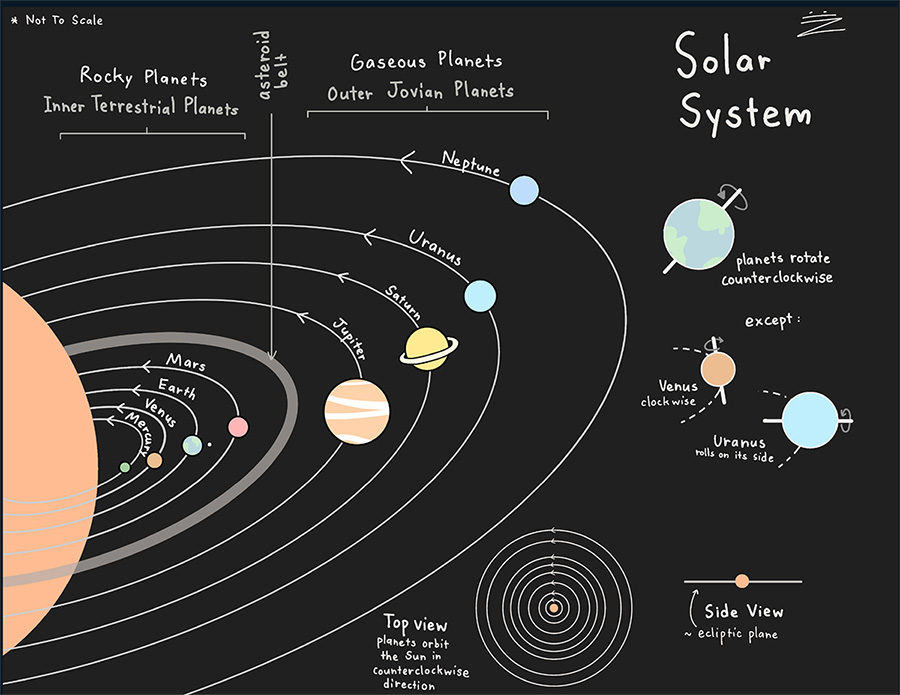 * Not To Scale
Solar
System
Rocky Planets
Inner Terrestrial Planets
asteroid
belt
Gaseous Planets
Outer Jovian Planets
Neptune
Uranus
Saturn
Jupiter
Mars
Earth
Venus
Mercury
planets rotate
counterclockwise
except:
Venus
clockwise
Uranus
rolls on its side
Top view
planets orbit
the Sun in
counterclockwise
direction
Side View
~ ecliptic plane